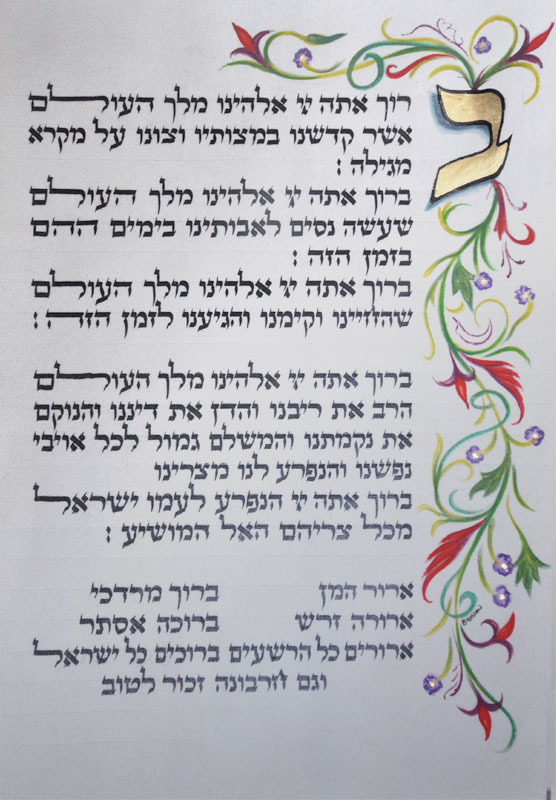 ברוך אתה יי אלהינו מלך העולם
אשר קדשנו במצותיו וצונו על מקרא
מגילה :
ברוך אתה יי אלהינו מלך העולם
שעשה נסים לאבותינו בימים ההם
בזמן הזה :
ברוך אתה יי אלהינו מלך העולם
שהחיינו וקימנו והגיענו לזמן הזה :
ברוך אתה יי אלהינו מלך העולם
הרב את ריבנו והדן את דיננו והנוקם
את נקמתנו והמשלם גמול לכל אויבי
נפשנו והנפרע לנו מצרינו
ברוך אתה יי הנפרע לעמו ישראל
מכל צריהם האל המושיע :
ארור המן ברוך מרדכי
ארורה זרש ברוכה אסתר
ארורים כל הרשעים ברוכים כל ישראל
וגם חרבונה זכור לטוב